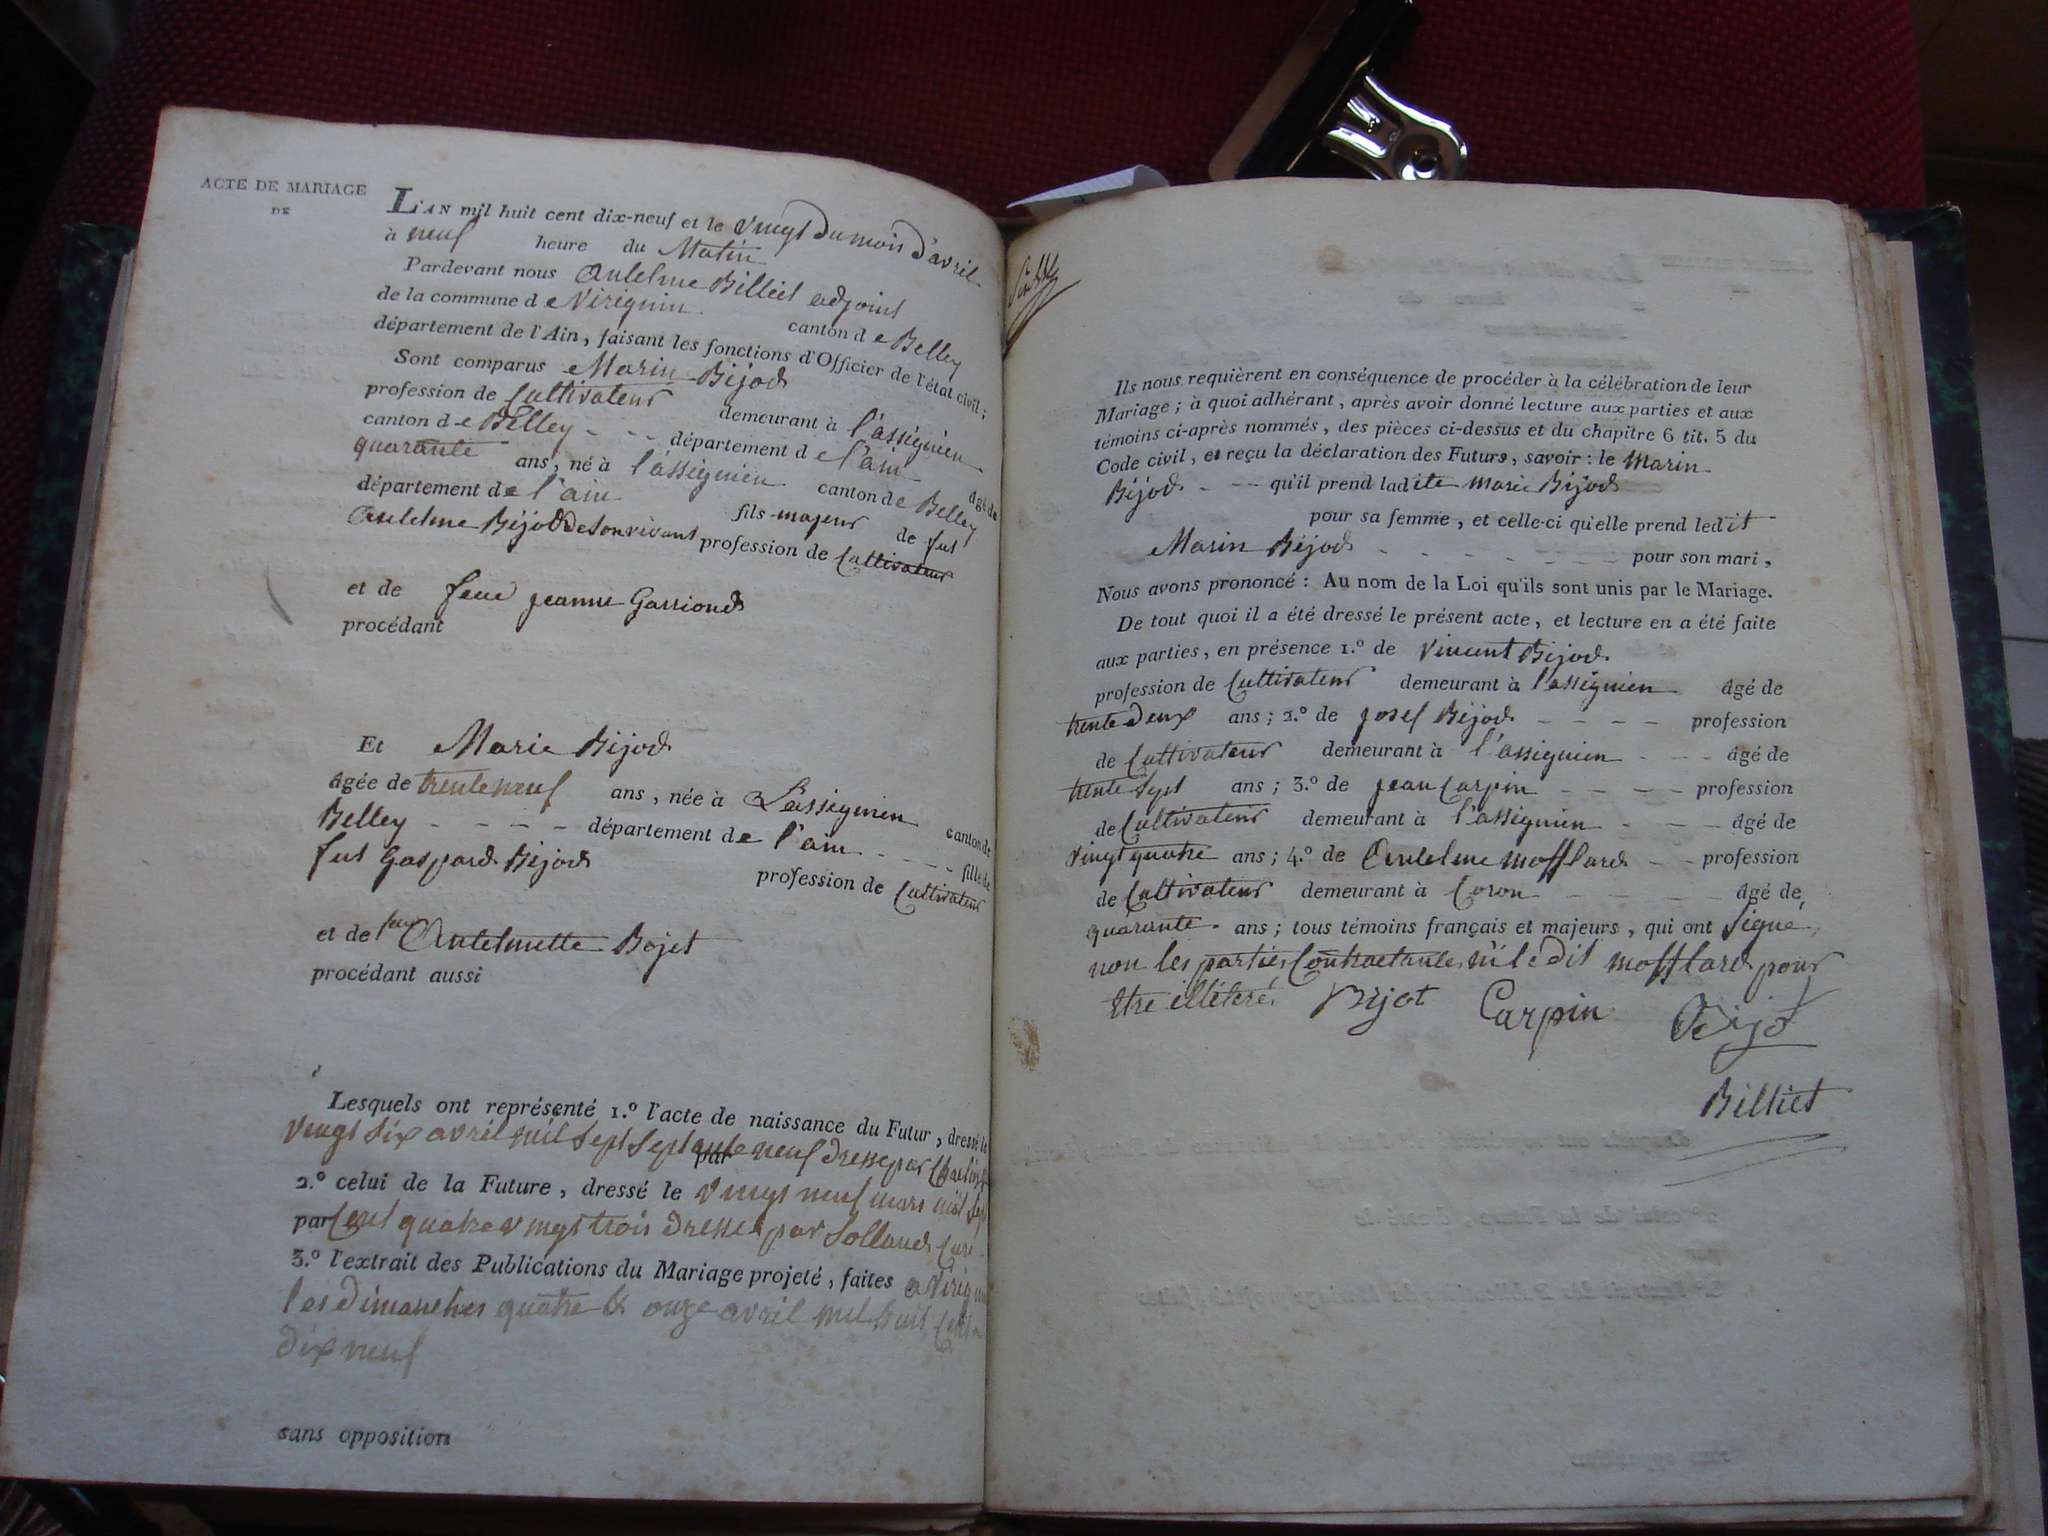 ACTE DE MARIAGE
DE
L'AN mil huit cent dix-neuf et le vingt du mois d'avril
à neuf heure du Matin
Pardevant nous Antelme Billiet adjoint
de la commune d e Virignin canton d e Belley
département de l'Ain, faisant les fonctions d'Officier de l'état civil;
Sont comparus Marin Bijod
profession de Cultivateur demeurant à l'assignieu
canton d e Belley - - - département d e l'ain âgé de
quarante ans, né à l'assignieu canton de Belley
département de l'ain fils majeur de fut
Antelme Bijod de Son vivant profession de Cultivateur
et de feue jeanne Gassiond
procédant
Et Marie Bijod
âgée de trente neuf ans, née à Lassignieu canton de
Belley - - - - département de l'ain - - - - fille de
fut Gaspard Bijod profession de Cultivateur
et de feue Antelmette Bojet
procédant aussi
Lesquels ont représenté 1.º l'acte de naissance du Futur, dressé le
vingt Six avril mil Sept Septante neuf dressé par
par
2.º celui de la Future, dressé le vingt neuf mars mil Sept
par Cent quatre vingt trois dressé par Solland Curé
3.º l'extrait des Publications du Mariage projeté, faites a Virignin
les dimanches quatre & onze avril mil huit Cent
dix neuf
sans opposition
Ils nous requièrent en conséquence de procéder à la célébration de leur
Mariage; à quoi adhérant, après avoir donné lecture aux parties et aux
témoins ci-après nommés, des pièces ci-dessus et du chapitre 6 tit. 5 du
Code civil, et reçu la déclaration des Futurs, savoir: le Marin
Bijod - - - qu'il prend ladite marie Bijod
pour sa femme, et celle-ci qu'elle prend ledit
Marin Bijod - - - - - - pour son mari,
Nous avons prononcé: Au nom de la Loi qu'ils sont unis par le Mariage.
De tout quoi il a été dressé le présent acte, et lecture en a été faite
aux parties, en présence 1.º de Vincent Bijod
profession de Cultivateur demeurant à l'assignieu âgé de
trente deux ans; 2.º de josef Bijod - - - - profession
de Cultivateur demeurant à l'assignieu - - - âgé de
trente Sept ans; 3.º de jean Carpin - - - - profession
de Cultivateur demeurant à l'assignieu - - - âgé de
vingt quatre ans; 4.º de Antelme mofflard - - profession
de Cultivateur demeurant à Coron - - - - âgé de
quarante ans; tous témoins français et majeurs, qui ont Signé,
non les parties Contractantes ni le dit mofflard pour
être illétéré. Bijot Carpin Bijot
Billiet